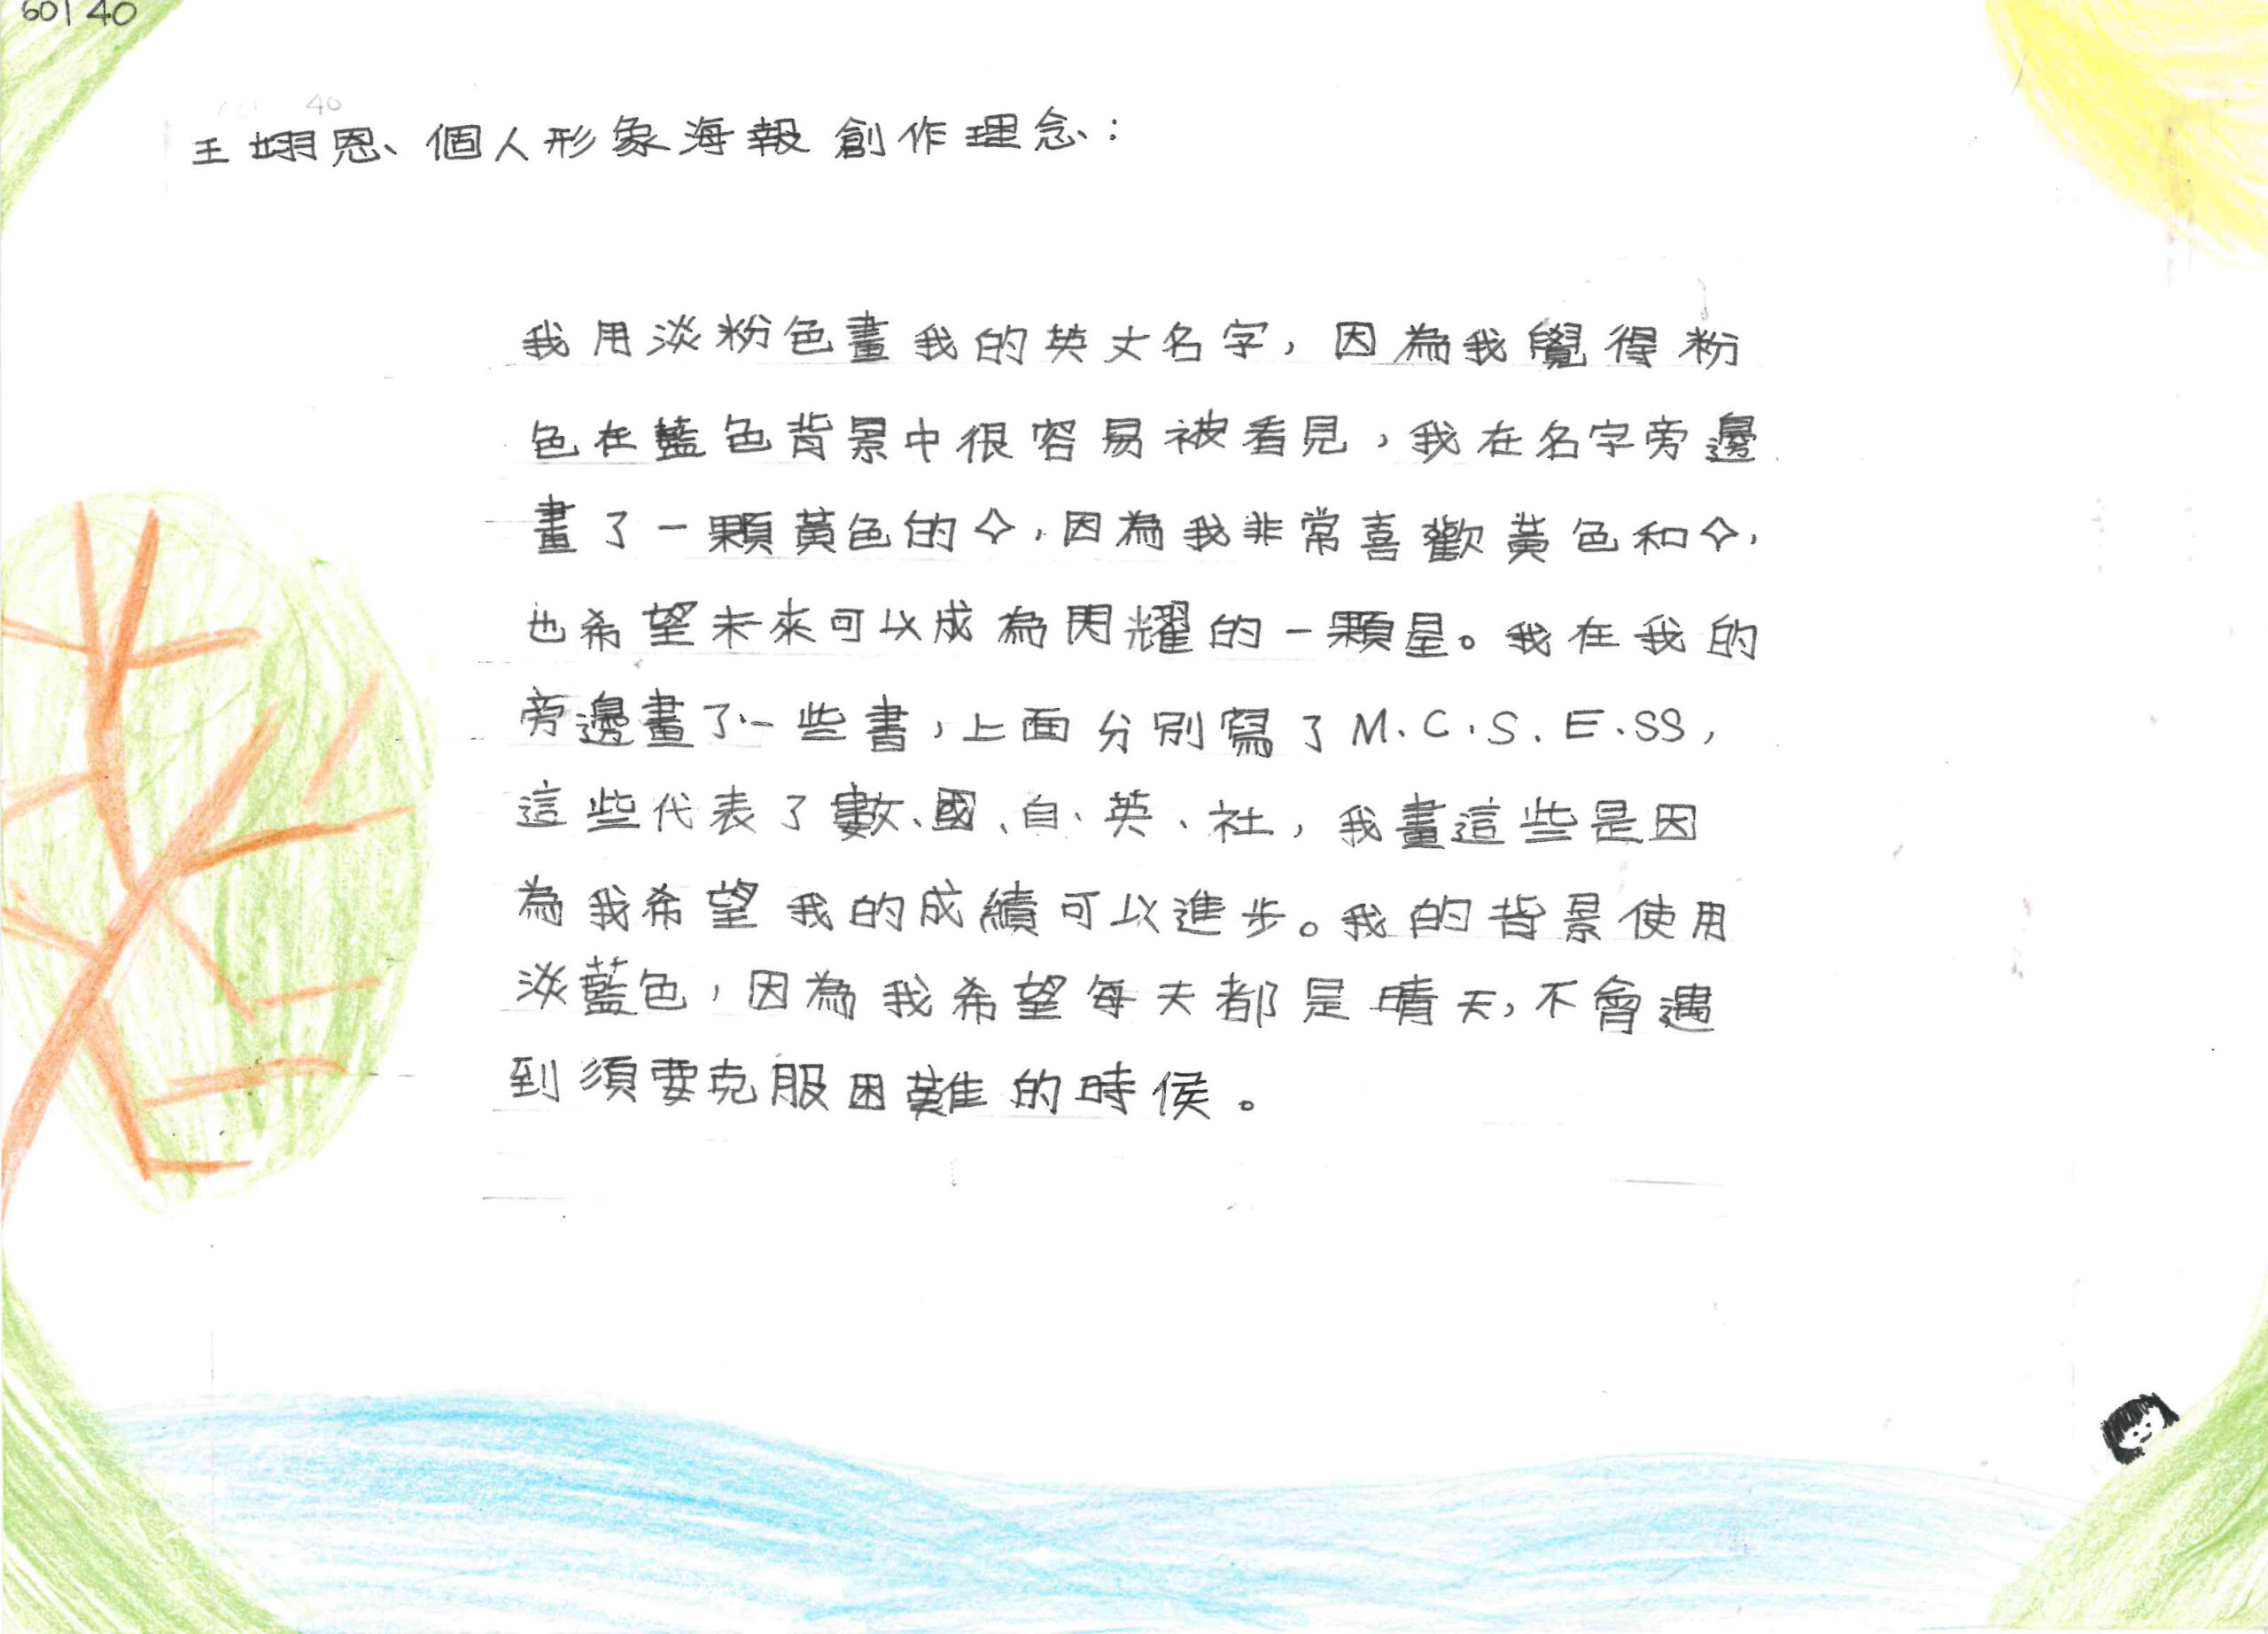 60140
40
王栩恩、個人形象海報創作理念：
我用淡粉色畫我的英文名字，因為我覺得粉
色在藍色背景中很容易被看見，我在名字旁邊
畫了一顆黃色的✧，因為我非常喜歡黃色和✧，
也希望未來可以成為閃耀的一顆星。我在我的
旁邊畫了一些書，上面分別寫了M、C、S、E、SS，
這些代表了數、國、自、英、社，我畫這些是因
為我希望我的成績可以進步。我的背景使用
淡藍色，因為我希望每天都是晴天，不會遇
到須要克服困難的時侯。